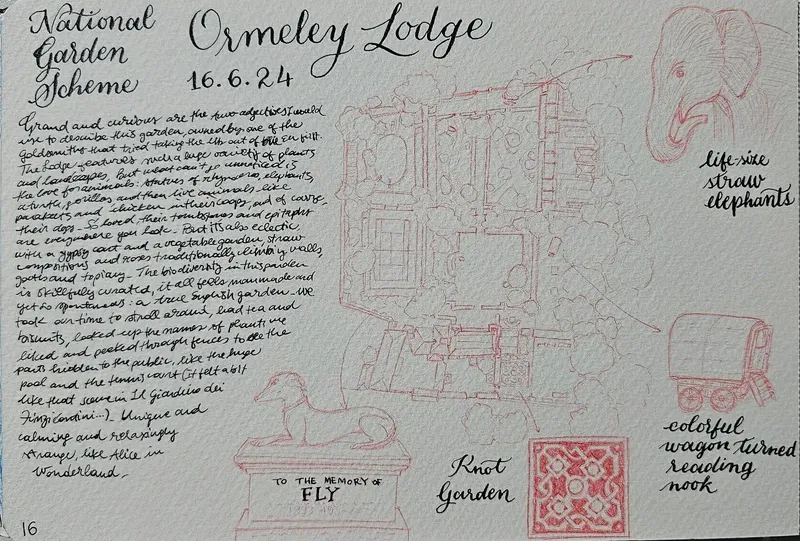 National
Garden
Scheme
Ormeley Lodge
16.6.24
Grand and curious are the two adjectives I would
use to describe this garden, owned by one of the
Goldsmiths that tried taking the UK out of the EU first.
The Lodge features such a huge variety of plants
and landscapes, But what can't go unnoticed is
the love for animals: statues of rhynoceros, elephants,
gorillas and then live animals like
parakeets and chicken in their coops, and of course,
their dogs - So loved, their tombstones and epitaphs
are everywhere you look - But it's also eclectic,
with a gypsy cart and a vegetable garden, straw
compositions and roses traditionally climbing walls,
and topiary - The biodiversity in this garden
is skillfully curated, it all feels manmade and
yet so spontaneous: a true English garden - We
took our time to stroll around, had tea and
biscuits, looked up the names of plants we
liked and peeked through fences to see the
parts hidden to the public, like the huge
pool and the tennis court (it felt a bit
like that scene in Il Giardino dei
Finzi Contini...) - Unique and
calming and relaxingly
strange, like Alice in
Wonderland -
life-size
straw
elephants
colorful
wagon turned
reading
nook
TO THE MEMORY OF
FLY
Knot
Garden
16